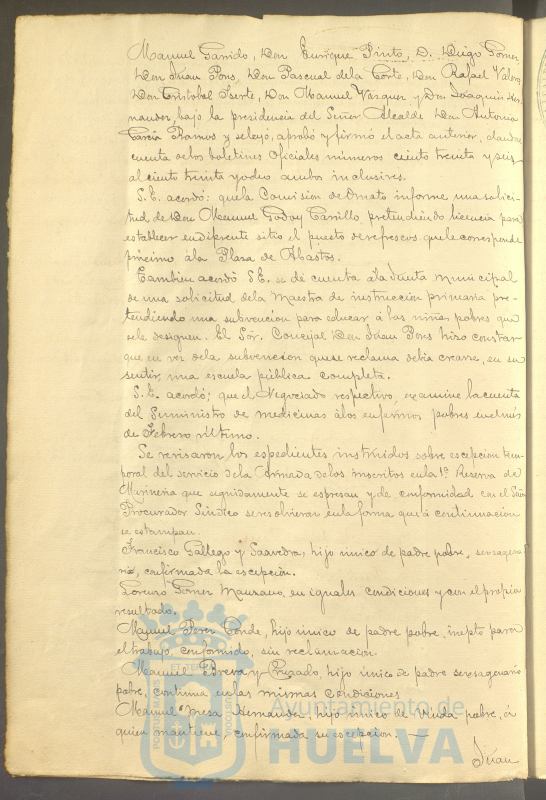 Manuel Garrido, Don Enrique Pinto, D. Diego Gomez,
Don Juan Pons, Don Pascual dela Corte, Don Rafael Valera
Don Cristobal Iserte, Don Manuel Vazquez y Don Joaquin Her-
nandez, bajo la presidencia del Señor Alcalde Don Antonio
Garcia Ramos y seleyó, aprobó y firmó el acta anterior, dandose
cuenta delos boletines Oficiales números ciento treinta y seis
al ciento treinta y ocho ambos inclusives.
S. E. acordó: quela Comision de Ornato informe una solici-
tud de Don Manuel Godoy Carrillo pretendiendo licencia para
establecer en diferente sitio el puesto de refrescos que le corresponde
próximo ála Plaza de Abastos.
Tambien acordó S.E. se dé cuenta ála Junta municipal
de una solicitud dela Maestra de instruccion primaria pre-
tendiendo una subvencion para educar á las niñas pobres que
sele designen. El Sór. Concejal Don Juan Pons hizo constar
que en vez dela subvencion quese reclama debia crearse, en su
sentir, una escuela pública completa.
S. E. acordó; que el Negociado respectivo, examine la cuenta
del Suministro de medicinas álos enfermos pobres en el mes
de Febrero último.
Se revisaron los espedientes instruidos sobre escepcion tem-
poral del servicio dela Armada delos inscritos en la 1ª Reserva de
Marineria que seguidamente se espresan y de conformidad con el Señor
Procurador Sindico se resolvieron en la forma que á continuacion
se estampan.
Francisco Gallego y Saavedra, hijo único de padre pobre, sexagena-
rio, confirmada la escepcion.
Lorenzo Gomez Manzano, en iguales condiciones y con el propio
resultado.
Manuel Perez Conde, hijo único de padre pobre, inepto para
el trabajo, conformido, sin reclamacion.
Manuel Breva y Cruzado, hijo único de padre sexagenario
pobre, continua en las mismas condiciones
Manuel Oresa Hernandez, hijo único de viuda pobre, á
quien mantiene, confirmada su escepcion. —
Juan
Ayuntamiento de
HUELVA